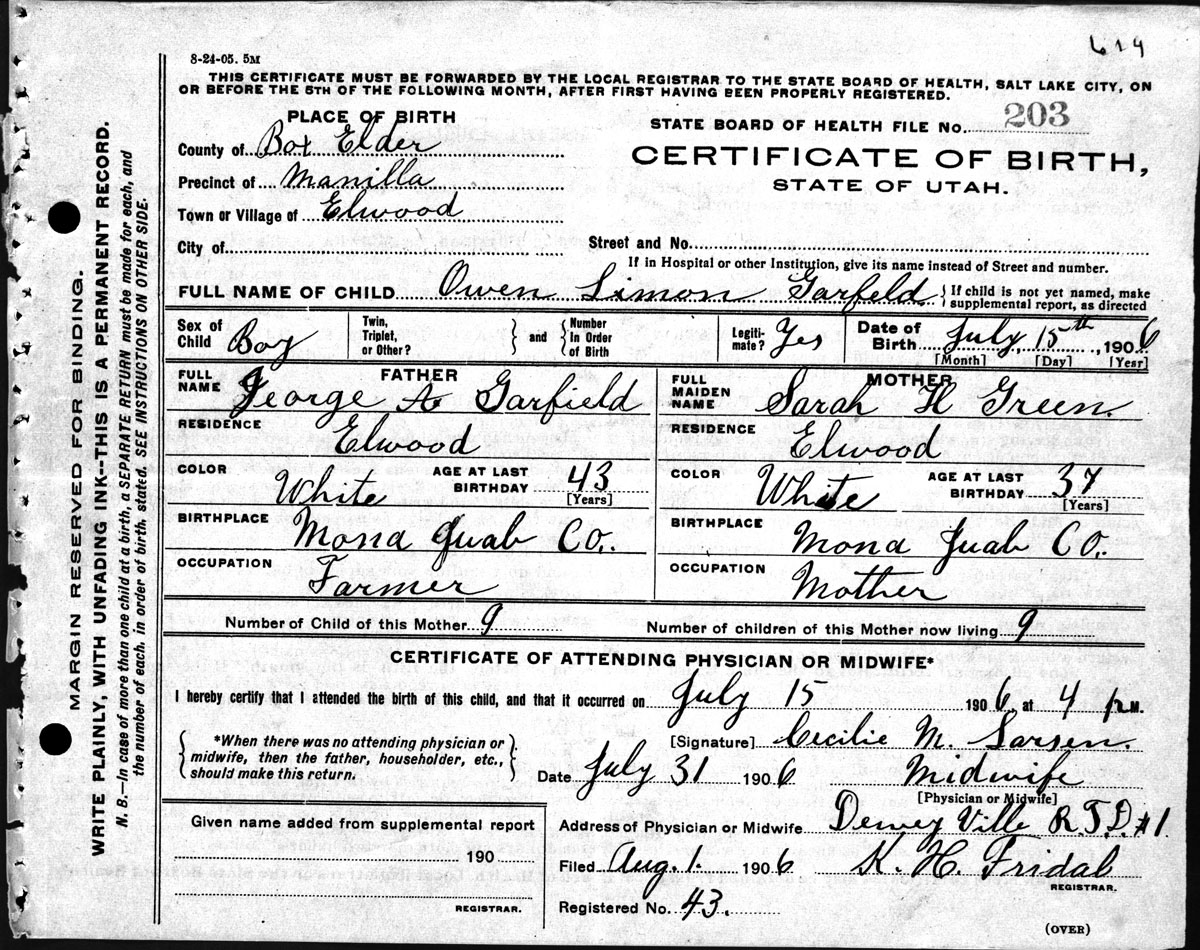 619
8-24-05. 5M
THIS CERTIFICATE MUST BE FORWARDED BY THE LOCAL REGISTRAR TO THE STATE BOARD OF HEALTH, SALT LAKE CITY, ON
OR BEFORE THE 5TH OF THE FOLLOWING MONTH, AFTER FIRST HAVING BEEN PROPERLY REGISTERED.
PLACE OF BIRTH
STATE BOARD OF HEALTH FILE No. 203
County of Box Elder
CERTIFICATE OF BIRTH,
Precinct of Manilla
STATE OF UTAH.
Town or Village of Elwood
City of
Street and No.
If in Hospital or other Institution, give its name instead of Street and number.
FULL NAME OF CHILD Owen Simon Garfeld { If child is not yet named, make
supplemental report, as directed
Sex of Child Boy Twin, Triplet, or Other? } and { Number In Order of Birth Legiti-mate? Yes Date of Birth July, 15th, 1906
[Month] [Day] [Year]
FATHER
FULL NAME George A Garfield
RESIDENCE Elwood
COLOR White AGE AT LAST BIRTHDAY 43
[Years]
BIRTHPLACE Mona Juab Co.
OCCUPATION Farmer
MOTHER
FULL MAIDEN NAME Sarah H Green.
RESIDENCE Elwood
COLOR White AGE AT LAST BIRTHDAY 37
[Years]
BIRTHPLACE Mona Juab Co.
OCCUPATION Mother
Number of Child of this Mother 9 Number of children of this Mother now living 9
CERTIFICATE OF ATTENDING PHYSICIAN OR MIDWIFE*
I hereby certify that I attended the birth of this child, and that it occurred on July 15 1906, at 4 p M.
{ *When there was no attending physician or
midwife, then the father, householder, etc.,
should make this return. }
[Signature] Cecilie M. Larsen.
Date July 31 1906 Midwife
[Physician or Midwife]
Given name added from supplemental report
190
REGISTRAR.
Address of Physician or Midwife Dewey Ville R.F.D. #1.
Filed Aug. 1. 1906 K. H. Fridal
REGISTRAR.
Registered No. 43.
(OVER)
MARGIN RESERVED FOR BINDING.
WRITE PLAINLY, WITH UNFADING INK--THIS IS A PERMANENT RECORD.
N. B.—In case of more than one child at a birth, a SEPARATE RETURN must be made for each, and
the number of each, in order of birth, stated. SEE INSTRUCTIONS ON OTHER SIDE.